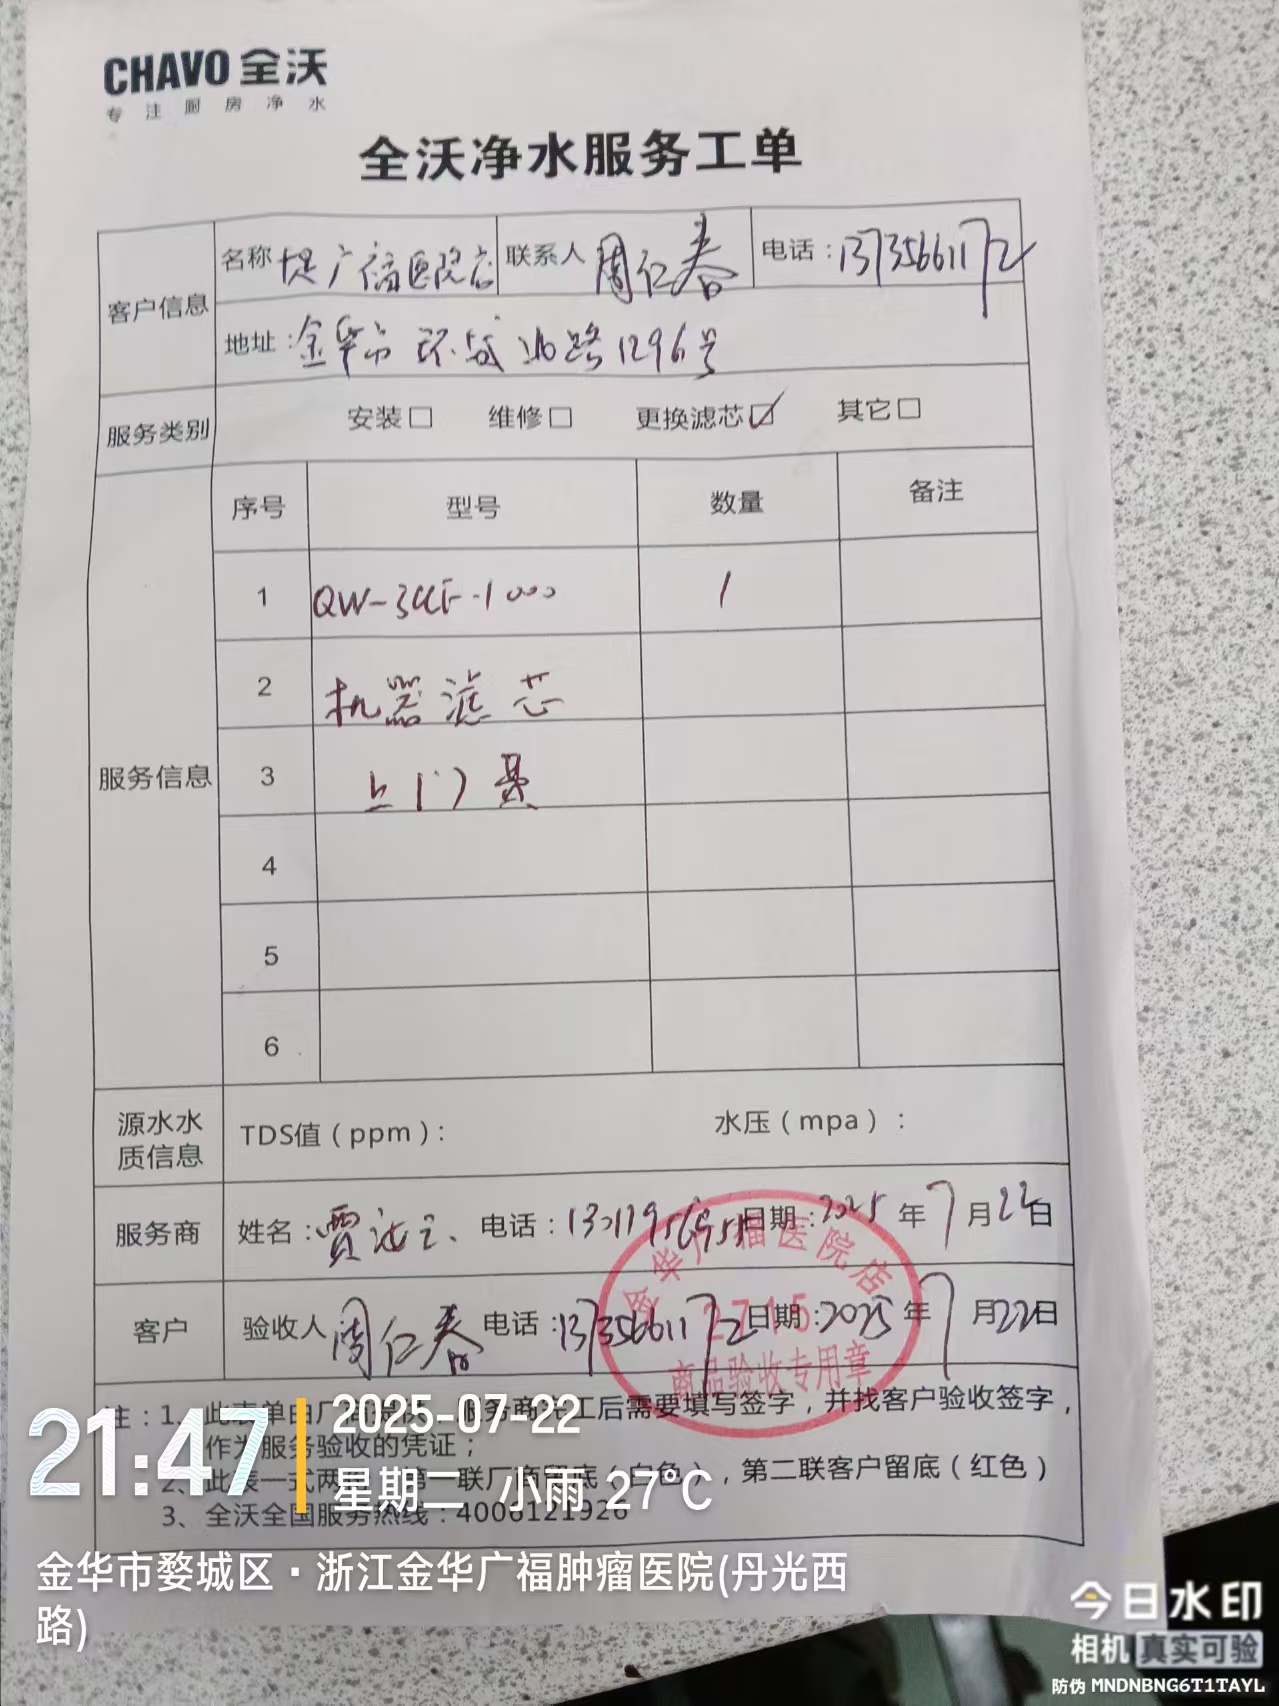 CHAVO 全沃
专注厨房净水
全沃净水服务工单
客户信息
名称 广福医院店 联系人 周仁春 电话：13735661172
地址：金华市环城北路1296号
服务类别 安装□ 维修□ 更换滤芯☑ 其它□
服务信息
序号 型号 数量 备注
1 QW-3CUF-1000 1
2 机器滤芯
3 上门费
4
5
6
源水水质信息
TDS值（ppm）： 水压（mpa）：
服务商 姓名：贾 电话： 日期：2025年7月22日
客户 验收人 周仁春 电话：13735661172 日期：2025年7月22日
金华广福医院店
2715
商品验收专用章
注：1、此表单由厂 服务商完工后需要填写签字，并找客户验收签字，
作为服务验收的凭证；
2、此表一式两 第一联厂商留底（白色），第二联客户留底（红色）
3、全沃全国服务热线：4006121926
21:47
2025-07-22
星期二 小雨 27°C
金华市婺城区·浙江金华广福肿瘤医院(丹光西
路)
今日水印
相机 真实可验
防伪 MNDNBNG6T1TAYL